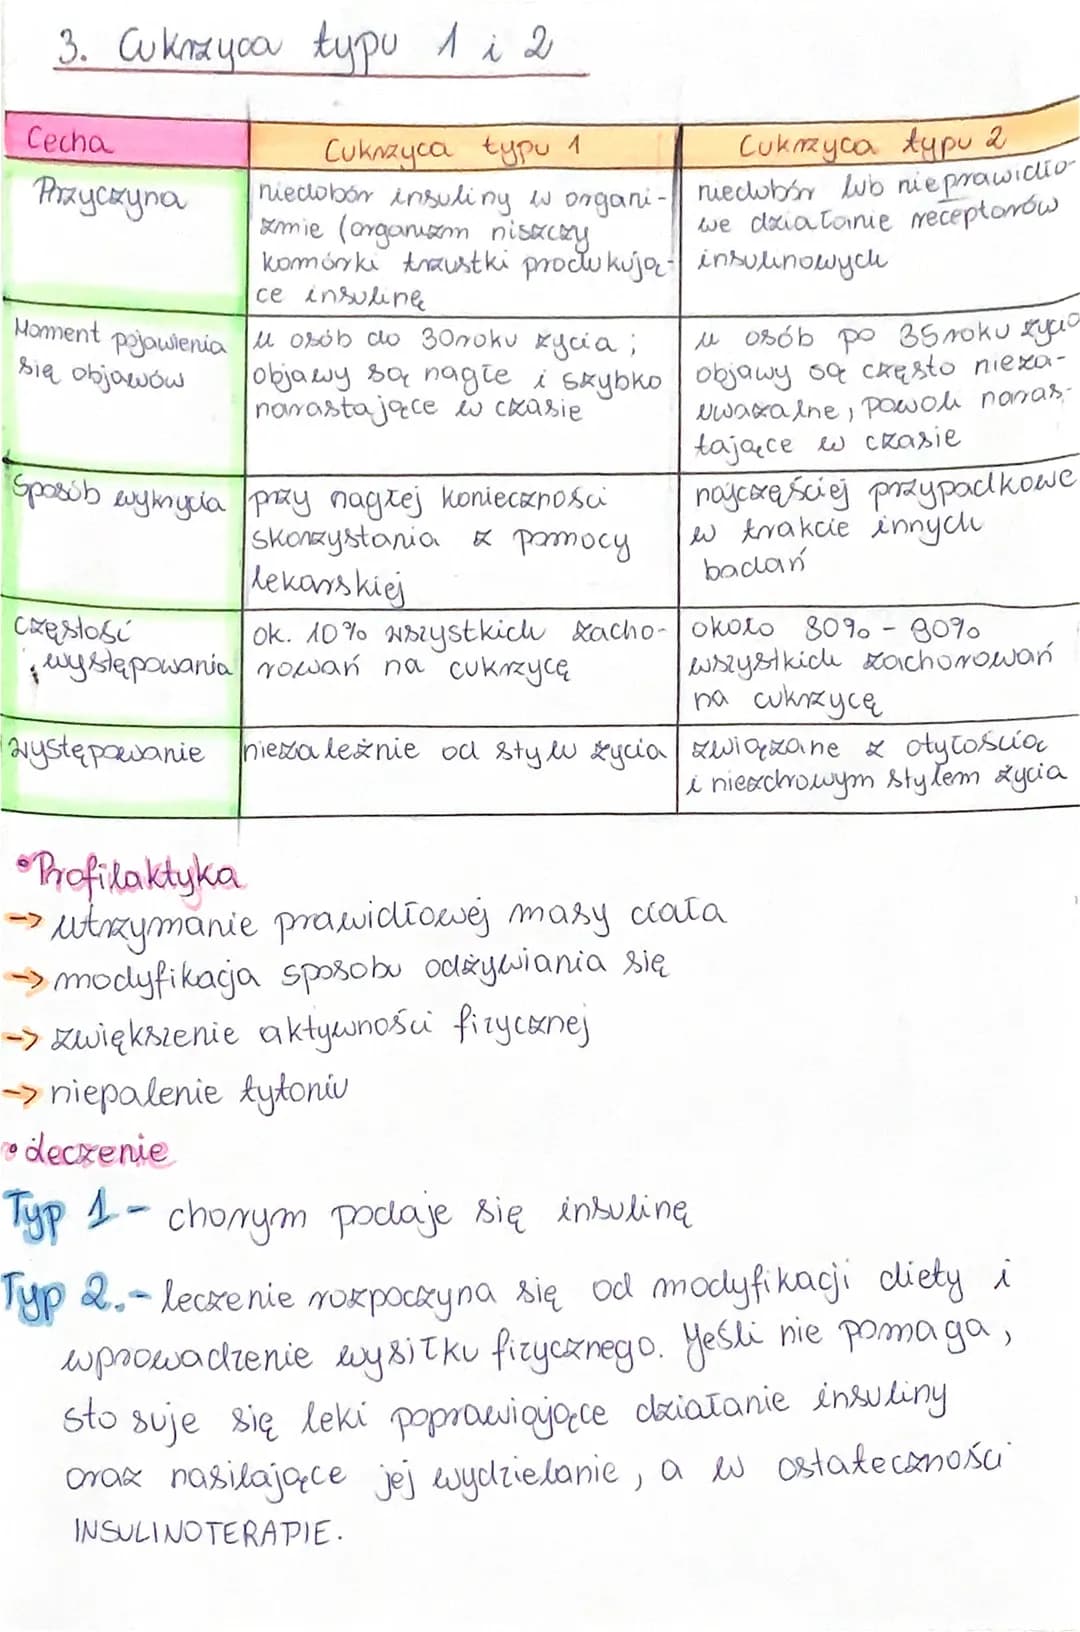 3. Cukrzyca typu 1 i 2
Cecha
Cukrzyca typu 1
Cukrzyca typu 2
Przyczyna
niedobór insuliny w organi-
zmie (organizm niszczy
komórki trzustki produkują-
ce insulinę
niedobór lub nieprawidło-
we działanie receptorów
insulinowych
Moment pojawienia
się objawów
u osób do 30 roku życia;
objawy są nagłe i szybko
narastające w czasie
u osób po 35 roku życia
objawy są często nieza-
uważalne, powoli naras-
tające w czasie
Sposób wykrycia
przy nagłej konieczności
skorzystania z pomocy
lekarskiej
najczęściej przypadkowe
w trakcie innych
badań
częstość
występowania
ok. 10% wszystkich zacho-
rowań na cukrzycę
około 80% - 90%
wszystkich zachorowań
na cukrzycę
występowanie
niezależnie od stylu życia
związane z otyłością
i niezdrowym stylem życia
•Profilaktyka
→ utrzymanie prawidłowej masy ciała
→ modyfikacja sposobu odżywiania się
→ zwiększenie aktywności fizycznej
→ niepalenie tytoniu
• Leczenie
Typ 1 - chorym podaje się insulinę
Typ 2. - leczenie rozpoczyna się od modyfikacji diety i
wprowadzenie wysiłku fizycznego. Jeśli nie pomaga,
stosuje się leki poprawiające działanie insuliny
oraz nasilające jej wydzielanie, a w ostateczności
INSULINOTERAPIE.